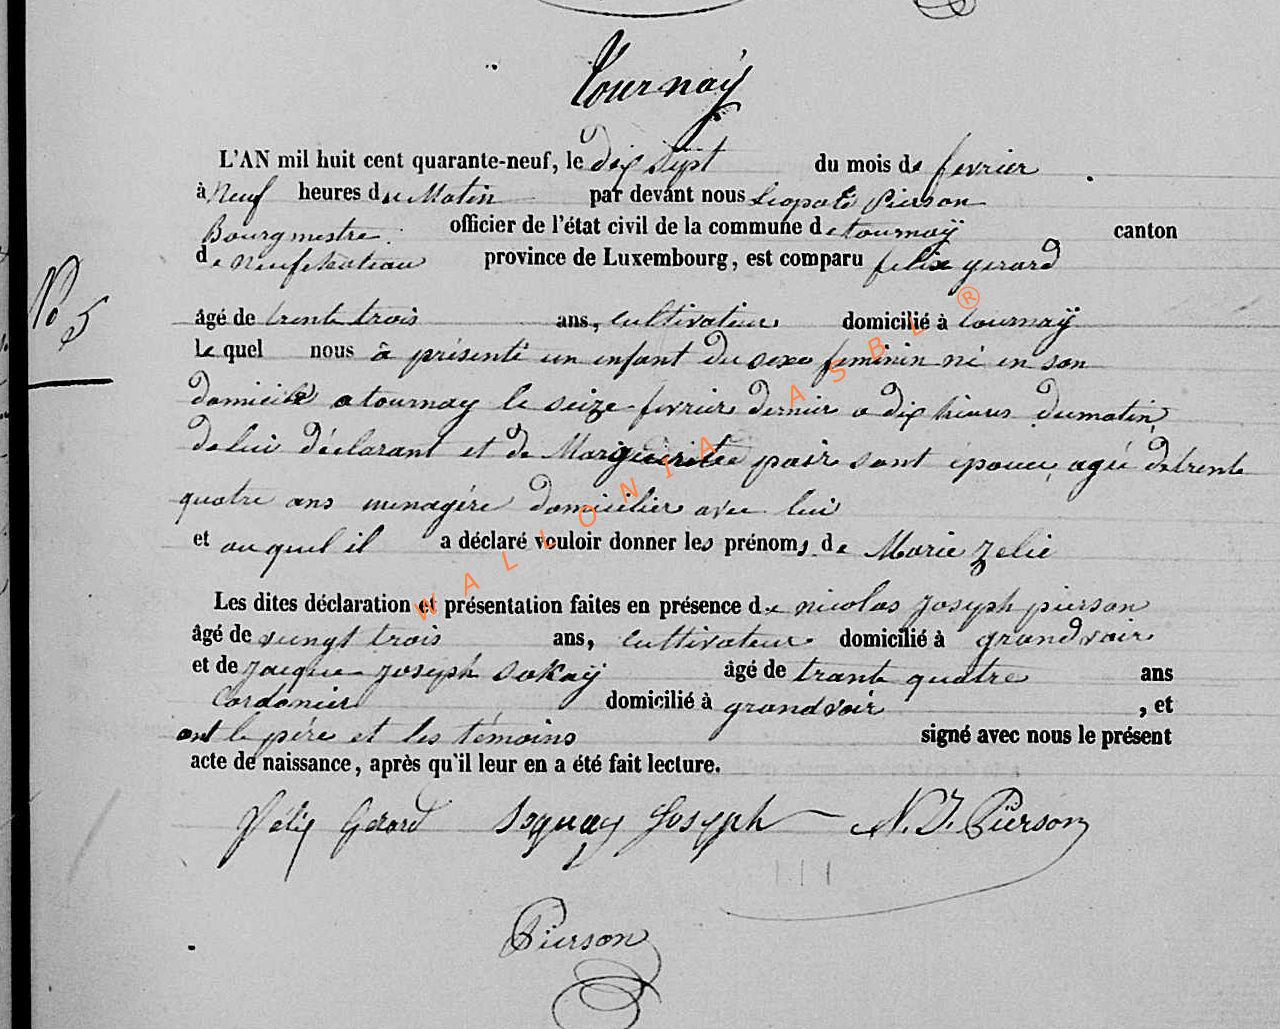 Tournaÿ
L'AN mil huit cent quarante-neuf, le dix Sept du mois de fevrier
à Neuf heures du Matin par devant nous Leopold Pierson
Bourgmestre officier de l'état civil de la commune de tournaÿ canton
de neufchateau province de Luxembourg, est comparu felix gerard
N° 5
âgé de trente trois ans, cultivateur domicilié à tournaÿ
le quel nous à présenté un enfant du sexe feminin né en son
domicile a tournay le seize fevrier dernier a dix heures du matin
de lui déclarant et de Margueritte sont épouse, agée de trente
quatre ans menagére domicilier avec lui
et auquel il a déclaré vouloir donner les prénoms de Marie Zelie
Les dites déclaration et présentation faites en présence de nicolas Joseph pierson
âgé de vungt trois ans, cultivateur domicilié à grandvoir
et de Jacque Joseph âgé de trante quatre ans
Cordonier domicilié à grandvoir , et
ont le pére et les témoins signé avec nous le présent
acte de naissance, après qu'il leur en a été fait lecture.
Félix Gérard Joseph N. J. Piërson
Piërson
WALLONIA ASBL ®